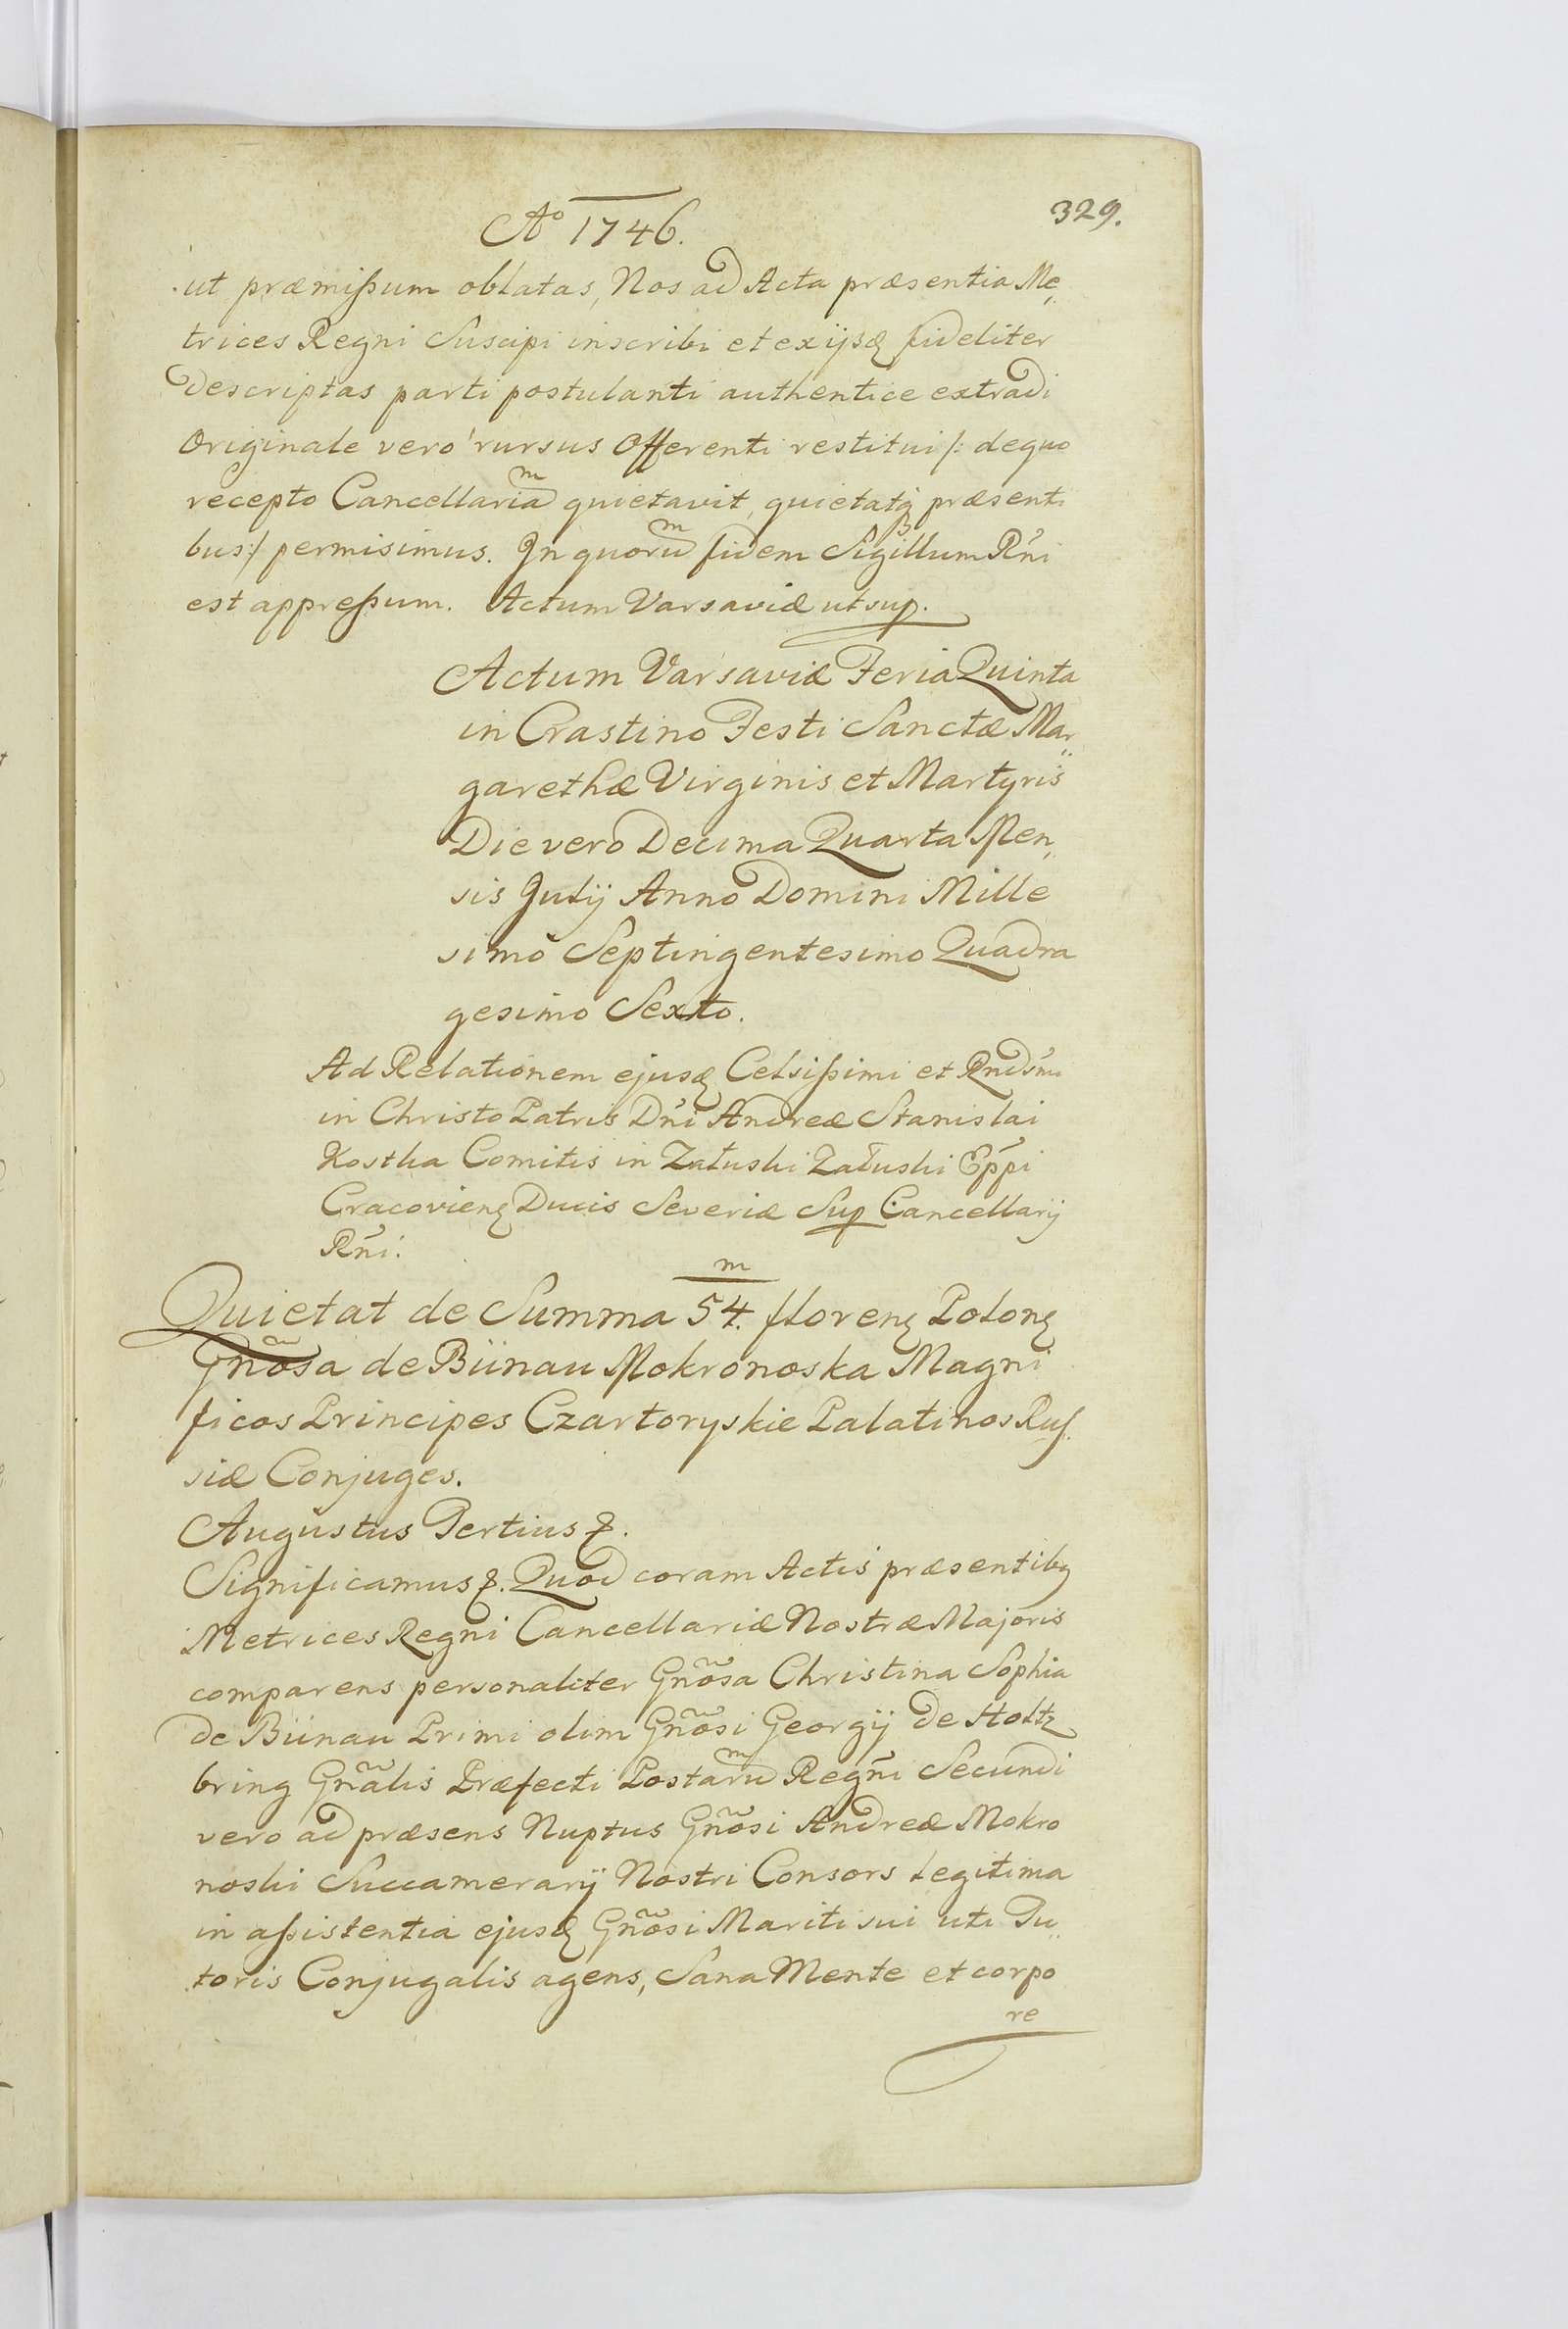 Aº 1746.
329.
ut præmissum oblatas, Nos ad Acta præsentia Me„
trices Regni Suscipi inscribi et ex ijsq fideliter
descriptas parti postulanti authentice extradi
Originale vero rursus Offerenti restitui /: de quo
recepto Cancellariam quietavit, quietatq præsenti
bus :/ permisimus. In quorum fidem Sigillum Rñi
est appressum. Actum Varsaviæ ut sup.
Actum Varsaviæ Feria Quinta
in Crastino Festi Sanctæ Mar„
garethæ Virginis et Martyris
Die vero Decima Quarta Men„
sis Julij Anno Domini Mille
simo Septingentesimo Quadra
gesimo Sexto.
Ad Relationem ejusq Celsissimi et Rndsmi
in Christo Patris Dñi Andreæ Stanislai
Kostka Comitis in Załuski Załuski Eppi
Cracovienq Ducis Severiæ Sup. Cancellarij
Rñi.
m
Quietat de Summa 54. florenq Polonq
Gñosa de Bünau Mokronoska Magni
ficos Principes Czartoryskie Palatinos Rus„
siæ Conjuges.
Augustus Tertius &.
Significamus &. Quod coram Actis præsentibq
Metrices Regni Cancellariæ Nostræ Majoris
comparens personaliter Gñosa Christina Sophia
de Bünau Primi olim Gñosi Georgij de Holtz
bring Gñalis Præfecti Postarum Regñi Secundi
vero ad præsens Nuptus Gñosi Andreæ Mokro
noski Succamerarij Nostri Consors legitima
in assistentia ejusq Gñosi Mariti sui uti Tu„
toris Conjugalis agens, Sana Mente et corpo
re